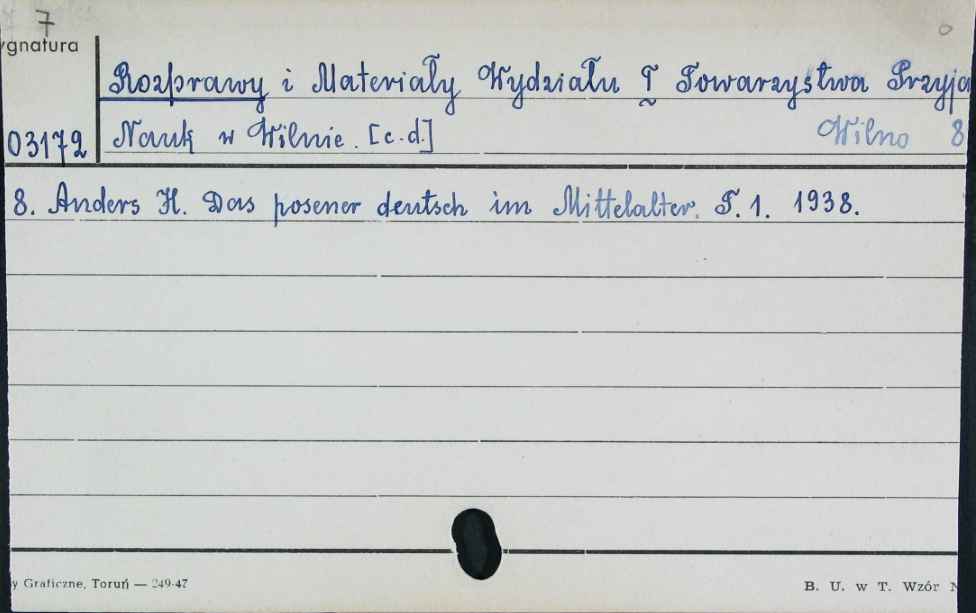 7
ygnatura
Rozprawy i Materiały Wydziału I Towarzystwa Przyja
03172
Nauk w Wilnie. [c.d.]
Wilno 8
8. Anders H. Das posener deutsch im Mittelalter. T. 1. 1938.
y Graficzne, Toruń — 249-47
B. U. w T. Wzór N